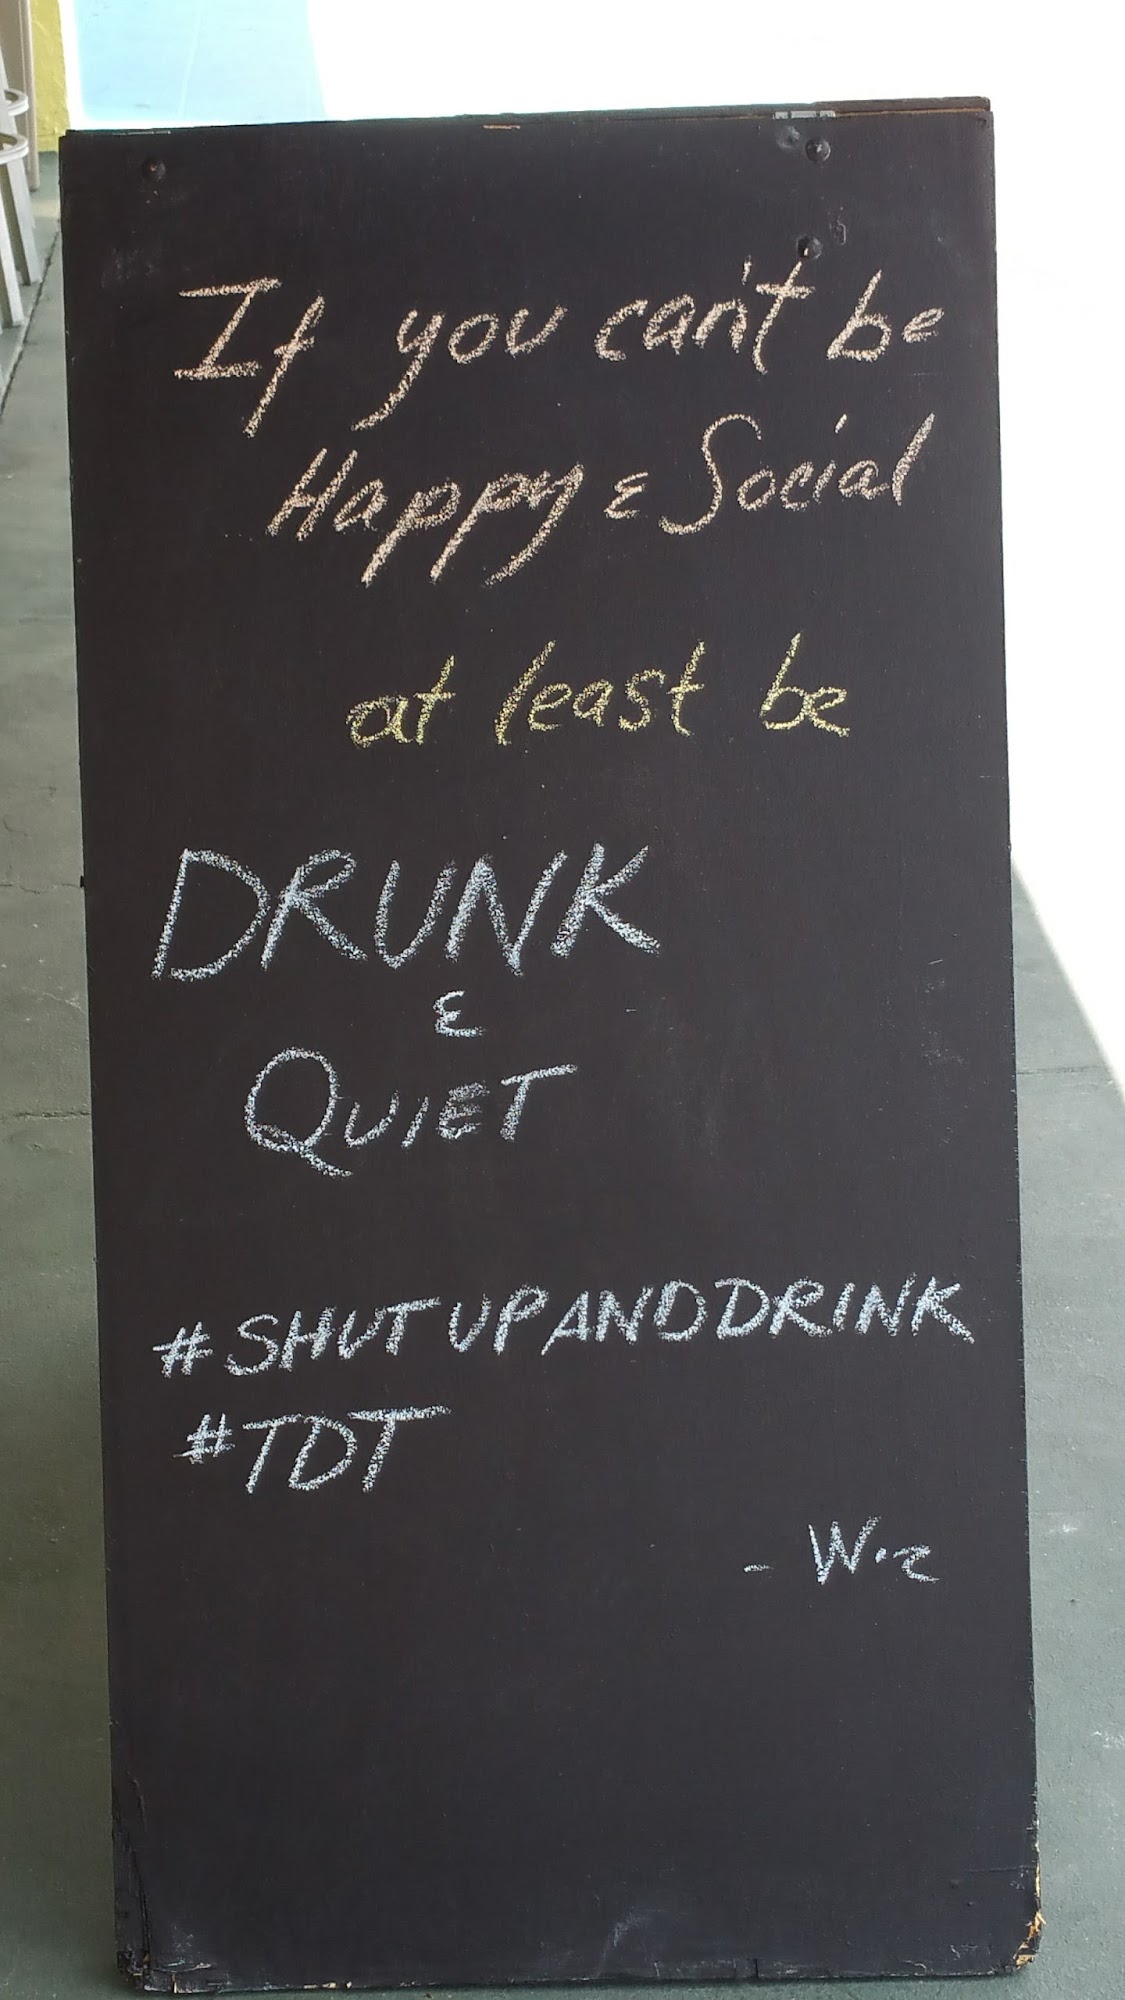 If you can't be
Happy & Social
at least be
DRUNK
&
QUIET
#SHUTUPANDDRINK
#TDT